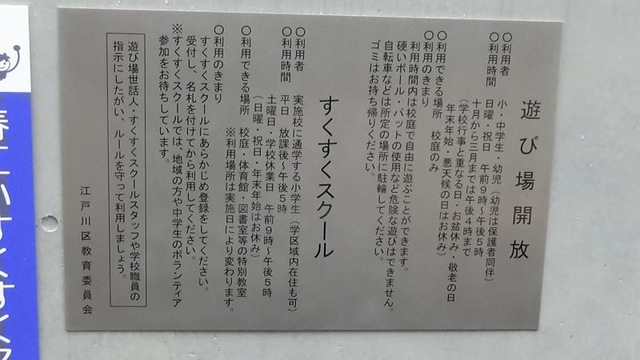 遊び場開放
○利用者　小・中学生・幼児（幼児は保護者同伴）
○利用時間　日曜・祝日　午前９時～午後５時
十月から三月までは午後４時まで
（学校行事と重なる日・お盆休み・敬老の日
年末年始・悪天候の日はお休み）
○利用できる場所　校庭のみ
○利用のきまり
利用時間内は校庭で自由に遊ぶことができます。
硬いボール・バットの使用など危険な遊びはできません。
自転車などは所定の場所に駐輪してください。
ゴミはお持ち帰りください。
すくすくスクール
○利用者　実施校に通学する小学生（学区域内在住も可）
○利用時間　平日　放課後～午後５時
土曜日・学校休業日　午前９時～午後５時
（日曜・祝日・年末年始はお休み）
○利用できる場所　校庭・体育館・図書室等の特別教室
※利用場所は実施日により変わります。
○利用のきまり
すくすくスクールにあらかじめ登録をしてください。
受付し、名札を付けてから利用してください。
※すくすくスクールでは、地域の方や中学生のボランティア
参加をお待ちしています。
遊び場世話人・すくすくスクールスタッフや学校職員の
指示にしたがい、ルールを守って利用しましょう。
江戸川区教育委員会